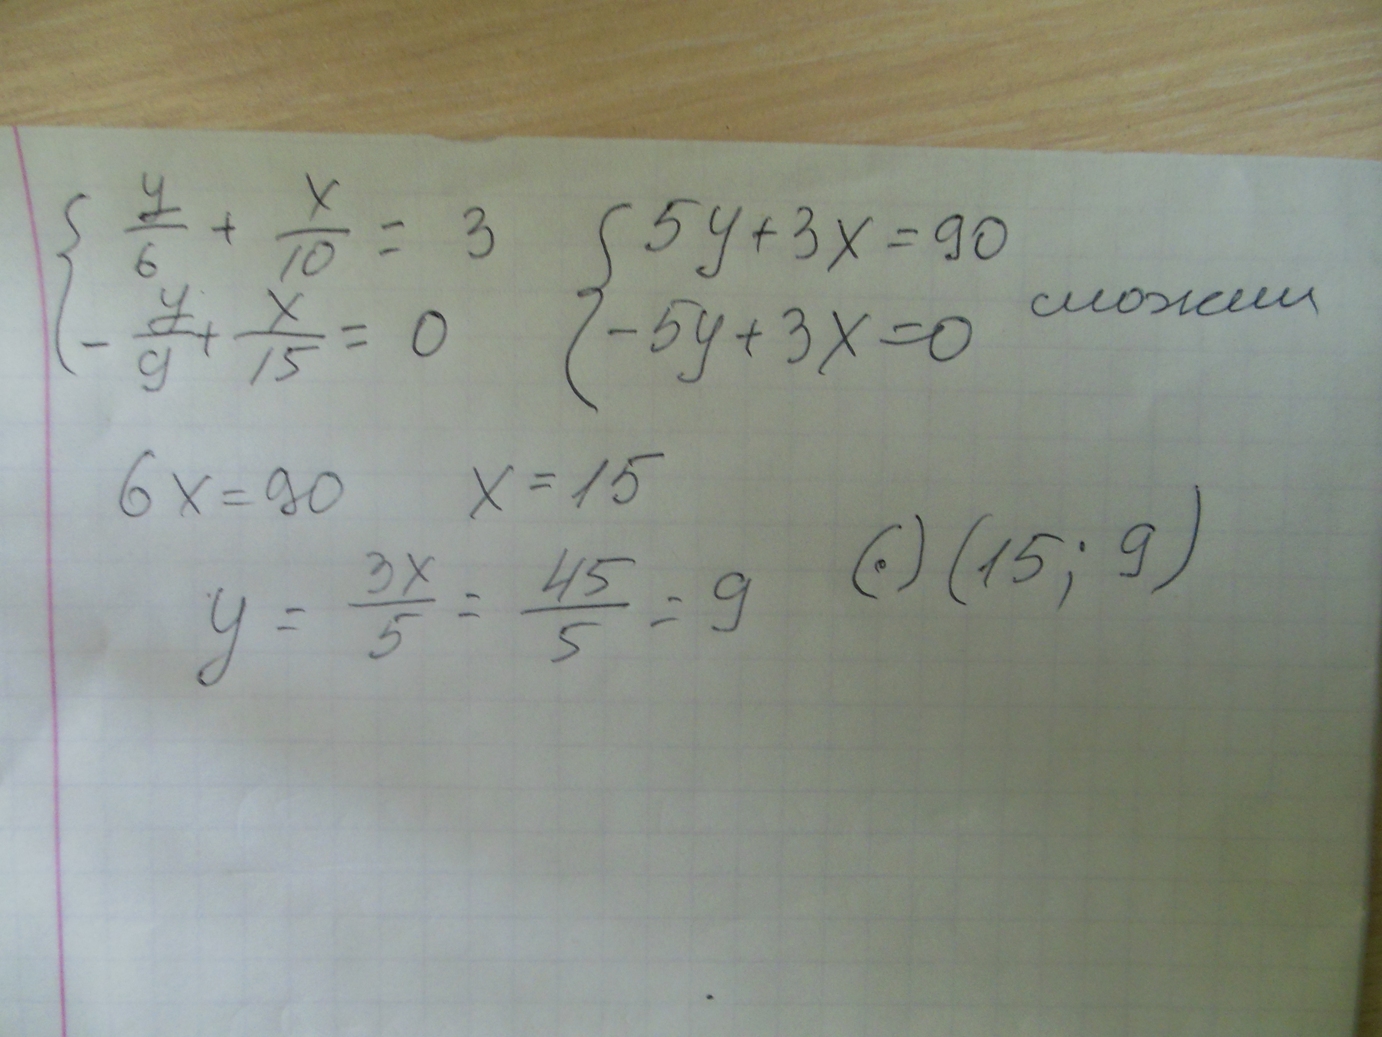 { y/6 + x/10 = 3 { 5y + 3x = 90
{ - y/9 + x/15 = 0 { -5y + 3x = 0 сложим
6x = 90 x = 15
y = 3x/5 = 45/5 = 9 (.) (15; 9)